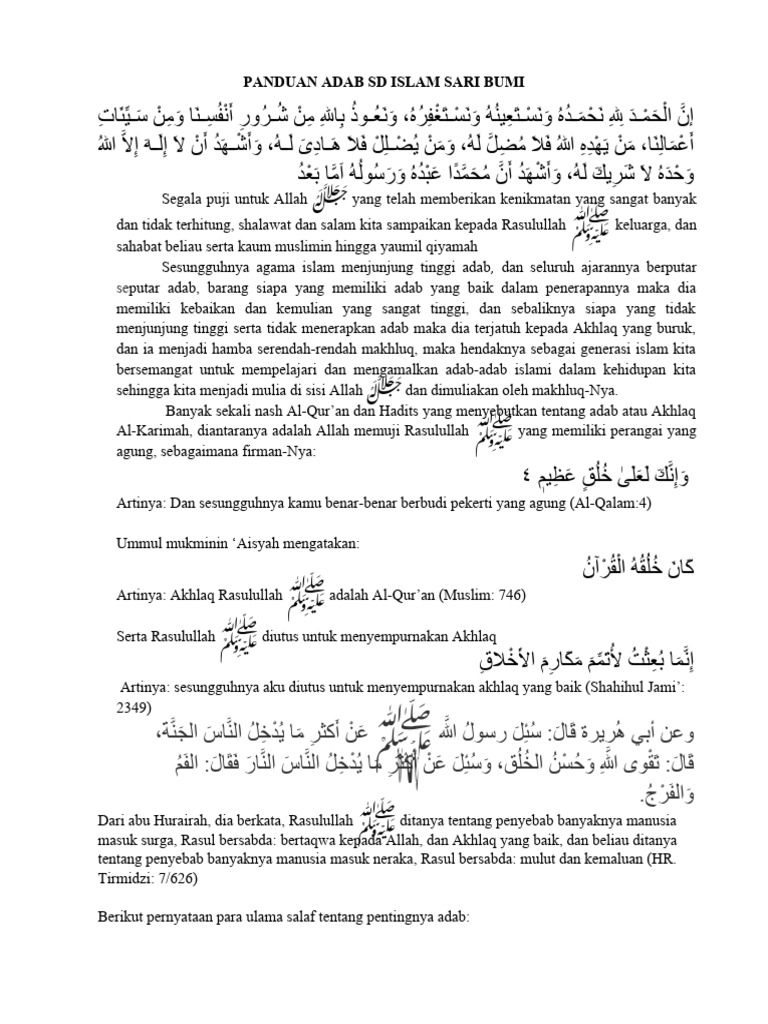 PANDUAN ADAB SD ISLAM SARI BUMI
إِنَّ الْحَمْـدَ لِلهِ نَحْمَـدُهُ وَنَسْـتَعِينُهُ وَنَسْـتَغْفِرُهُ، وَنَعُـوذُ بِاللهِ مِنْ شُـرُورِ أَنْفُسِـنَا وَمِنْ سَـيِّئَاتِ
أَعْمَالِنَا، مَنْ يَهْدِهِ اللهُ فَلَا مُضِلَّ لَهُ، وَمَنْ يُضْـلِلْ فَلَا هَـادِىَ لَـهُ، وَأَشْـهَدُ أَنْ لاَ إِلَـهَ إِلاَّ اللهُ
وَحْدَهُ لاَ شَرِيكَ لَهُ، وَأَشْهَدُ أَنَّ مُحَمَّدًا عَبْدُهُ وَرَسُولُهُ اَمَّا بَعْدُ
Segala puji untuk Allah ﷻ yang telah memberikan kenikmatan yang sangat banyak
dan tidak terhitung, shalawat dan salam kita sampaikan kepada Rasulullah ﷺ keluarga, dan
sahabat beliau serta kaum muslimin hingga yaumil qiyamah
Sesungguhnya agama islam menjunjung tinggi adab, dan seluruh ajarannya berputar
seputar adab, barang siapa yang memiliki adab yang baik dalam penerapannya maka dia
memiliki kebaikan dan kemulian yang sangat tinggi, dan sebaliknya siapa yang tidak
menjunjung tinggi serta tidak menerapkan adab maka dia terjatuh kepada Akhlaq yang buruk,
dan ia menjadi hamba serendah-rendah makhluq, maka hendaknya sebagai generasi islam kita
bersemangat untuk mempelajari dan mengamalkan adab-adab islami dalam kehidupan kita
sehingga kita menjadi mulia di sisi Allah ﷻ dan dimuliakan oleh makhluq-Nya.
Banyak sekali nash Al-Qur’an dan Hadits yang menyebutkan tentang adab atau Akhlaq
Al-Karimah, diantaranya adalah Allah memuji Rasulullah ﷺ yang memiliki perangai yang
agung, sebagaimana firman-Nya:
وَإِنَّكَ لَعَلَىٰ خُلُقٍ عَظِيمٖ ٤
Artinya: Dan sesungguhnya kamu benar-benar berbudi pekerti yang agung (Al-Qalam:4)
Ummul mukminin ‘Aisyah mengatakan:
كَانَ خُلُقُهُ الْقُرْآنُ
Artinya: Akhlaq Rasulullah ﷺ adalah Al-Qur’an (Muslim: 746)
Serta Rasulullah ﷺ diutus untuk menyempurnakan Akhlaq
إِنَّمَا بُعِثْتُ لأُتَمِّمَ مَكَارِمَ الأَخْلاقِ
Artinya: sesungguhnya aku diutus untuk menyempurnakan akhlaq yang baik (Shahihul Jami’:
2349)
وعن أبي هُريرة قَالَ: سُئِلَ رسولُ اللَّهِ ﷺ عَنْ أَكثرِ مَا يُدْخِلُ النَّاسَ الجَنَّةَ،
قَالَ: تَقْوى اللَّهِ وَحُسْنُ الخُلُق، وَسُئِلَ عَنْ أَكثرِ مَا يُدْخِلُ النَّاسَ النَّارَ فَقَالَ: الفَمُ
وَالفَرْجُ.
Dari abu Hurairah, dia berkata, Rasulullah ﷺ ditanya tentang penyebab banyaknya manusia
masuk surga, Rasul bersabda: bertaqwa kepada Allah, dan Akhlaq yang baik, dan beliau ditanya
tentang penyebab banyaknya manusia masuk neraka, Rasul bersabda: mulut dan kemaluan (HR.
Tirmidzi: 7/626)
Berikut pernyataan para ulama salaf tentang pentingnya adab: